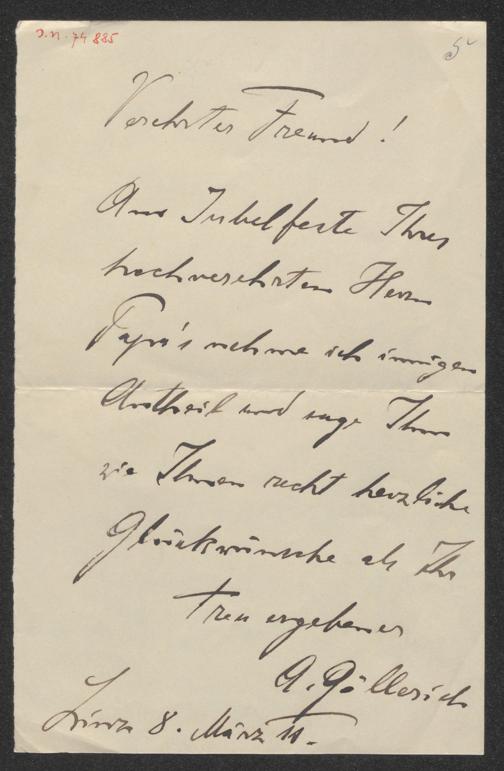 I.N. 74 885
5
Verehrter Freund!
Am Jubelfeste Ihres
hochverehrten Herrn
Papa's nehme ich innigen
Antheil und sage Ihm
wie Ihnen recht herzliche
Glückwünsche als Ihr
treu ergebener
A. Göllerich
Linz 8. März 11.